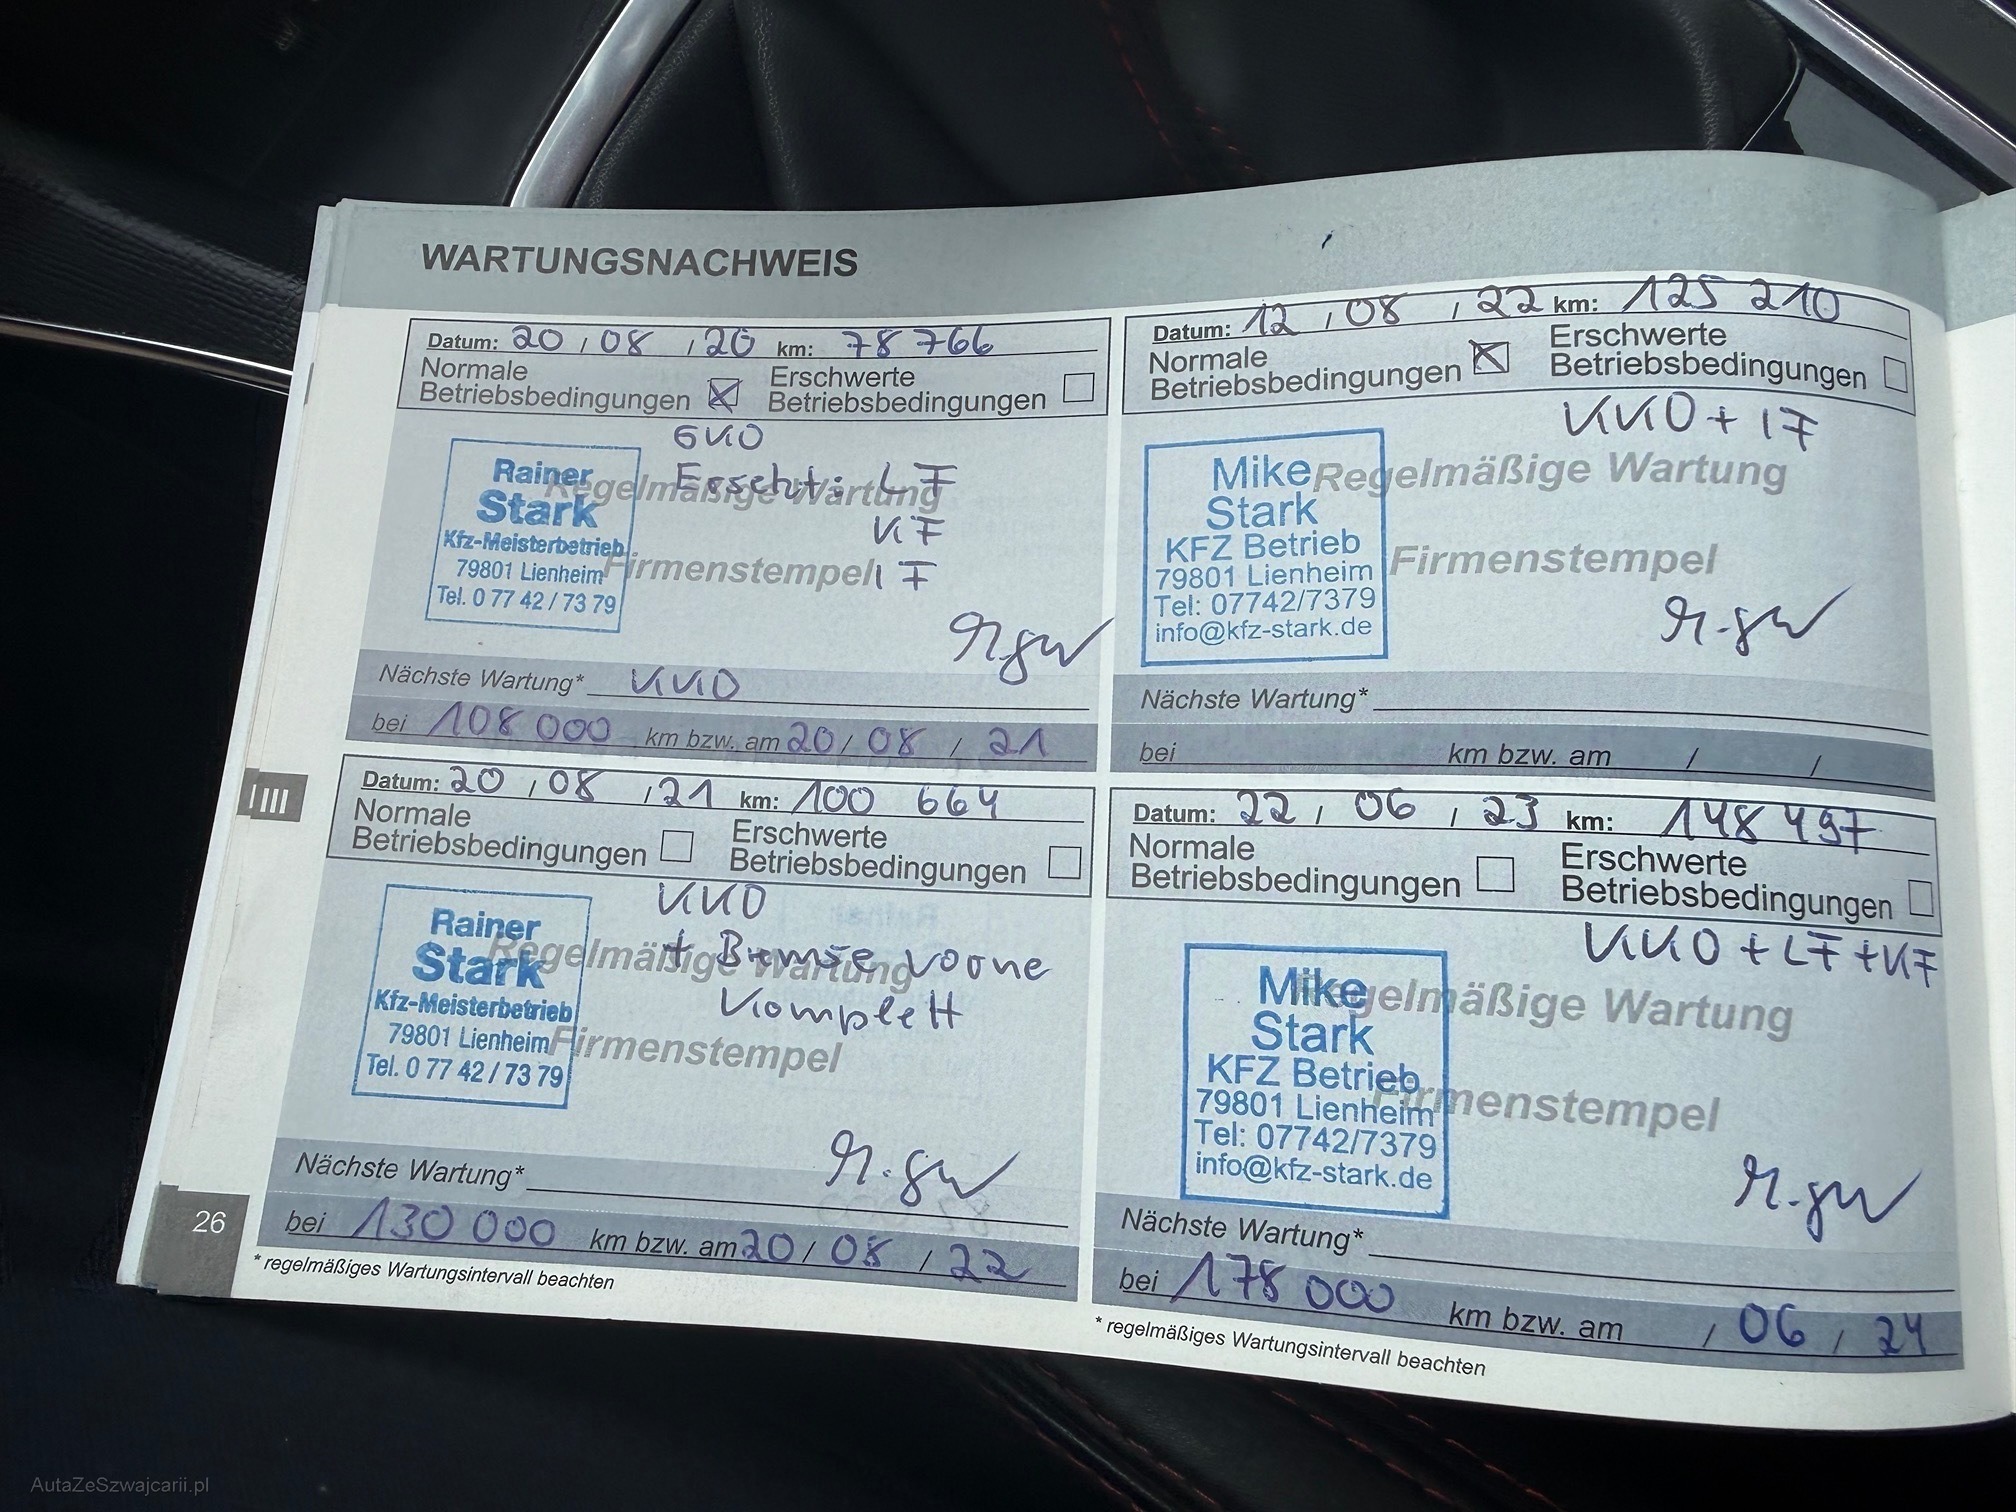 WARTUNGSNACHWEIS
Datum: 20 / 08 / 20 km: 78 766
Normale
Betriebsbedingungen
Erschwerte
Betriebsbedingungen
GKD
Ersetzt: LF
KF
IF
Rainer
Stark
Kfz-Meisterbetrieb
79801 Lienheim
Tel. 0 77 42 / 73 79
Regelmäßige Wartung
Firmenstempel
Nächste Wartung* KKD
bei 108 000 km bzw. am 20 / 08 / 21
Datum: 20 / 08 / 21 km: 100 664
Normale
Betriebsbedingungen
Erschwerte
Betriebsbedingungen
KKD
+ Bremse vorne
Komplett
Rainer
Stark
Kfz-Meisterbetrieb
79801 Lienheim
Tel. 0 77 42 / 73 79
Regelmäßige Wartung
Firmenstempel
Nächste Wartung*
bei 130 000 km bzw. am 20 / 08 / 22
* regelmäßiges Wartungsintervall beachten
26
III
Datum: 12 / 08 / 22 km: 125 210
Normale
Betriebsbedingungen
Erschwerte
Betriebsbedingungen
KKD + IF
Mike
Stark
KFZ Betrieb
79801 Lienheim
Tel: 07742/7379
info@kfz-stark.de
Regelmäßige Wartung
Firmenstempel
Nächste Wartung*
bei km bzw. am / /
Datum: 22 / 06 / 23 km: 148 497
Normale
Betriebsbedingungen
Erschwerte
Betriebsbedingungen
KKD + LF + KF
Mike
Stark
KFZ Betrieb
79801 Lienheim
Tel: 07742/7379
info@kfz-stark.de
Regelmäßige Wartung
Firmenstempel
Nächste Wartung*
bei 178 000 km bzw. am / 06 / 24
* regelmäßiges Wartungsintervall beachten
AutaZeSzwajcarii.pl